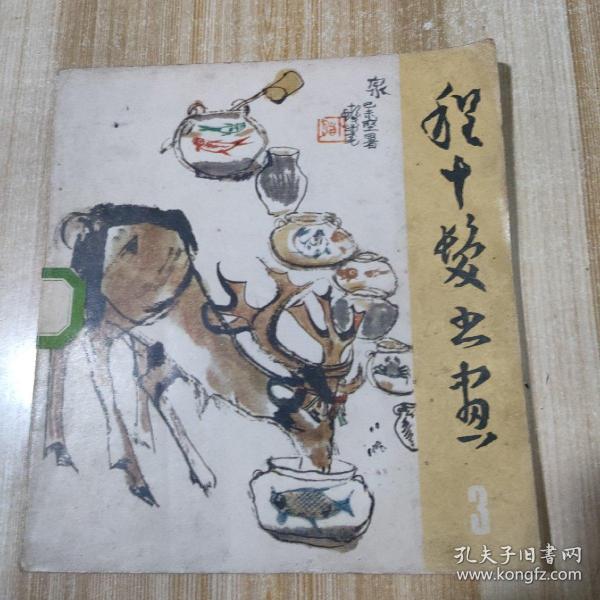 程十髮书画
3
泉
孔夫子旧书网
www.kongfz.com